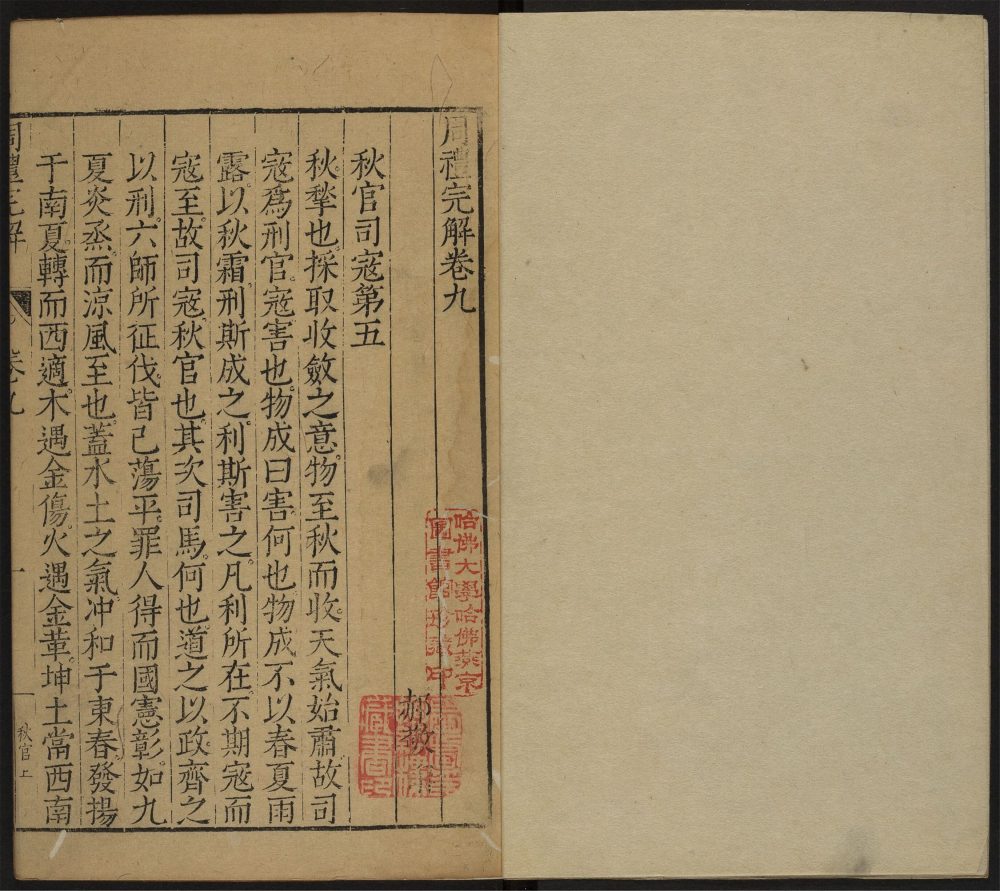 周禮完解卷九
郝敬
秋官司寇第五
秋揫也採取收斂之意物至秋而收天氣始肅故司
寇爲刑官寇害也物成曰害何也物成不以春夏雨
露以秋霜刑斯成之利斯害之凡利所在不期寇而
寇至故司寇秋官也其次司馬何也道之以政齊之
以刑六師所征伐皆已蕩平罪人得而國憲彰如九
夏炎烝而涼風至也蓋水土之氣冲和于東春發揚
于南夏轉而西適木遇金傷火遇金革坤土當西南
周禮完解
卷九
一
秋官上
哈佛大學哈佛燕京
圖書館珍藏印
藏書印